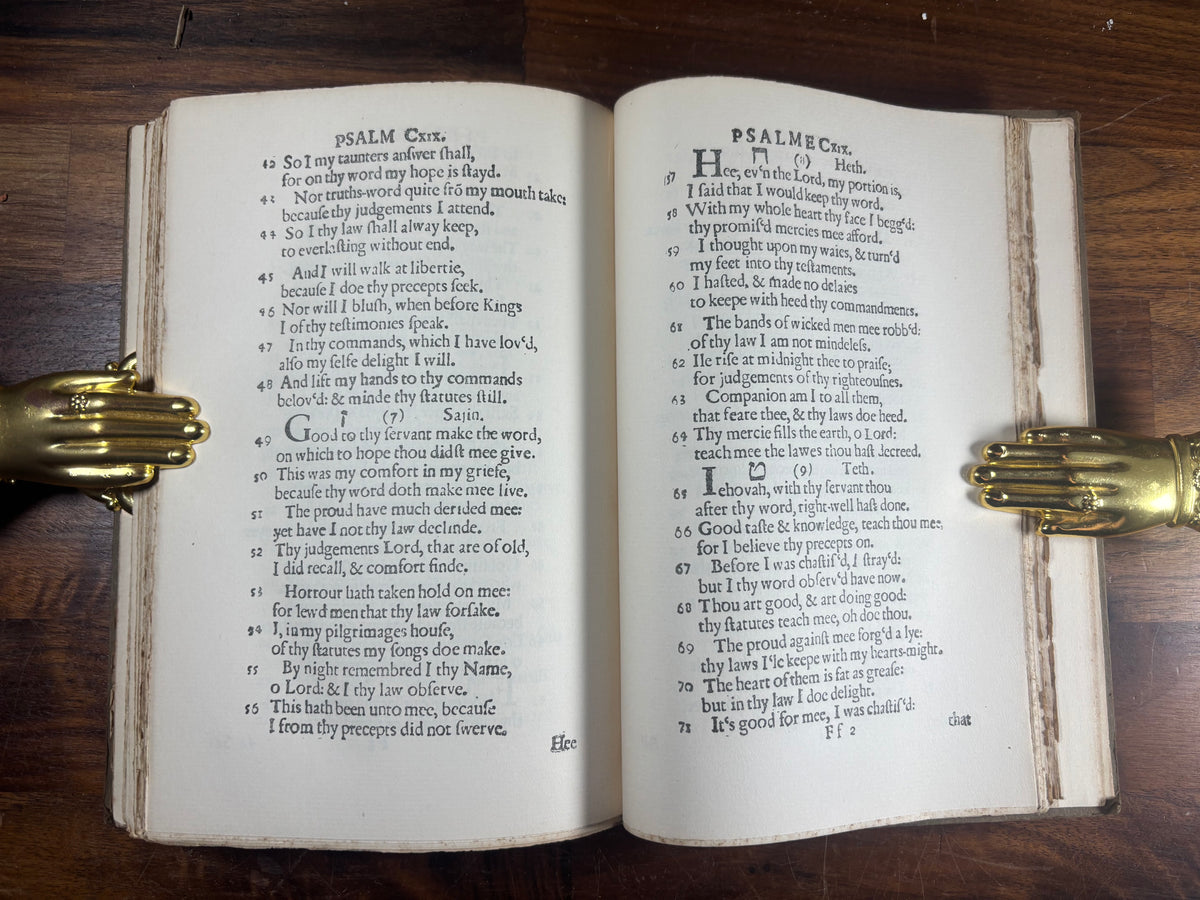 PSALM Cxix.
42 So I my taunters anſwer ſhall,
for on thy word my hope is ſtayd.
43 Nor truths-word quite frō my mouth take:
becauſe thy judgements I attend.
44 So I thy law ſhall alway keep,
to everlaſting without end.
45 And I will walk at libertie,
becauſe I doe thy precepts ſeek.
46 Nor will I bluſh, when before Kings
I of thy teſtimonies ſpeak.
47 In thy commands, which I have lov'd,
alſo my ſelfe delight I will.
48 And lift my hands to thy commands
belov'd: & minde thy ſtatutes ſtill.
(7) Sajin.
49 Good to thy ſervant make the word,
on which to hope thou didſt mee give.
50 This was my comfort in my griefe,
becauſe thy word doth make mee live.
51 The proud have much derided mee:
yet have I not thy law declinde.
52 Thy judgements Lord, that are of old,
I did recall, & comfort finde.
53 Horrour hath taken hold on mee:
for lewd men that thy law forſake.
54 I, in my pilgrimages houſe,
of thy ſtatutes my ſongs doe make.
55 By night remembred I thy Name,
o Lord: & I thy law obſerve.
56 This hath been unto mee, becauſe
I from thy precepts did not ſwerve.
Hee
PSALME Cxix.
ח (8) Heth.
57 Hee, ev'n the Lord, my portion is,
I ſaid that I would keep thy word.
58 With my whole heart thy face I begg'd:
thy promiſ'd mercies mee afford.
59 I thought upon my waies, & turn'd
my feet into thy teſtaments.
60 I haſted, & made no delaies
to keepe with heed thy commandments.
61 The bands of wicked men mee robb'd:
of thy law I am not mindeleſs.
62 Ile riſe at midnight thee to praiſe;
for judgements of thy righteouſnes.
63 Companion am I to all them,
that feare thee, & thy laws doe heed.
64 Thy mercie fills the earth, o Lord:
teach mee the lawes thou haſt decreed.
ט (9) Teth.
65 Iehovah, with thy ſervant thou
after thy word, right-well haſt done.
66 Good taſte & knowledge, teach thou mee,
for I believe thy precepts on.
67 Before I was chaſtiſ'd, I ſtray'd:
but I thy word obſerv'd have now.
68 Thou art good, & art doing good:
thy ſtatutes teach mee, oh doe thou.
69 The proud againſt mee forg'd a lye:
thy laws I'le keepe with my hearts-might.
70 The heart of them is fat as greaſe:
but in thy law I doe delight.
71 It's good for mee, I was chaſtiſ'd:
that
Ff 2